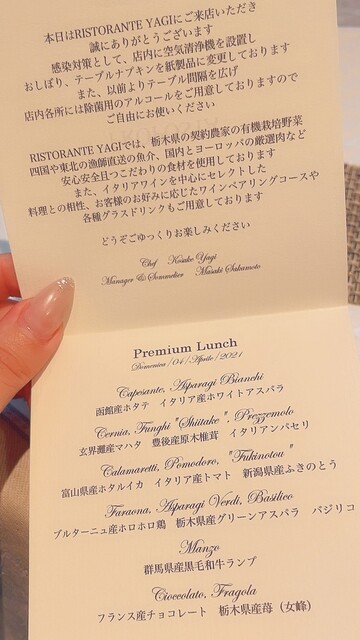 本日はRISTORANTE YAGIにご来店いただき
誠にありがとうございます
感染対策として、店内に空気清浄機を設置し
おしぼり、テーブルナプキンを紙製品に変更しております
また、以前よりテーブル間隔を広げ
店内各所には除菌用のアルコールをご用意しておりますので
ご自由にお使いください
RISTORANTE YAGIでは、栃木県の契約農家の有機栽培野菜
四国や東北の漁師直送の魚介、国内とヨーロッパの厳選肉など
安心安全且つこだわりの食材を使用しております
また、イタリアワインを中心にセレクトした
料理との相性、お客様のお好みに応じたワインペアリングコースや
各種グラスドリンクもご用意しております
どうぞごゆっくりお楽しみください
Chef Kosuke Yagi
Manager & Sommelier Masaki Sakamoto
Premium Lunch
Domenica / 04 / Aprile / 2021
Capesante, Asparagi Bianchi
函館産ホタテ イタリア産ホワイトアスパラ
Cernia, Funghi "Shiitake", Prezzemolo
玄界灘産マハタ 豊後産原木椎茸 イタリアンパセリ
Calamaretti, Pomodoro, "Fukinotou"
富山県産ホタルイカ イタリア産トマト 新潟県産ふきのとう
Faraona, Asparagi Verdi, Basilico
ブルターニュ産ホロホロ鶏 栃木県産グリーンアスパラ バジリコ
Manzo
群馬県産黒毛和牛ランプ
Cioccolato, Fragola
フランス産チョコレート 栃木県産苺(女峰)